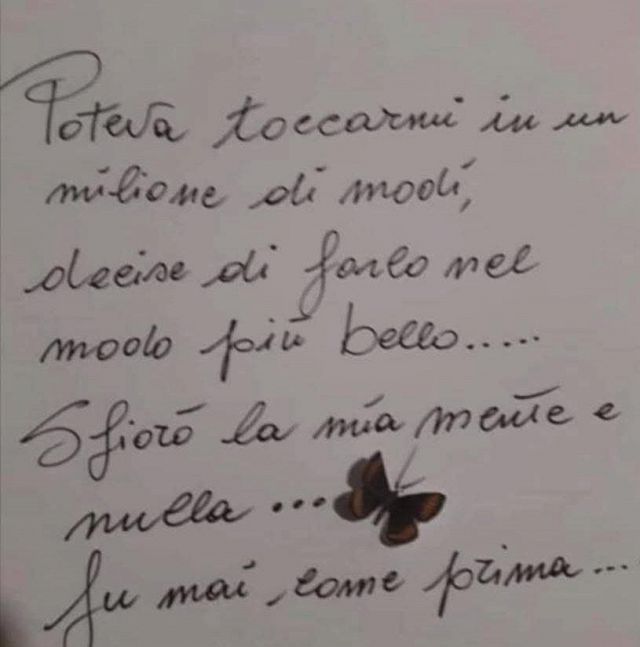 Poteva toccarmi in un
milione di modi,
decise di farlo nel
modo più bello.....
Sfiorò la mia mente e
nulla ...
fu mai, come prima ...